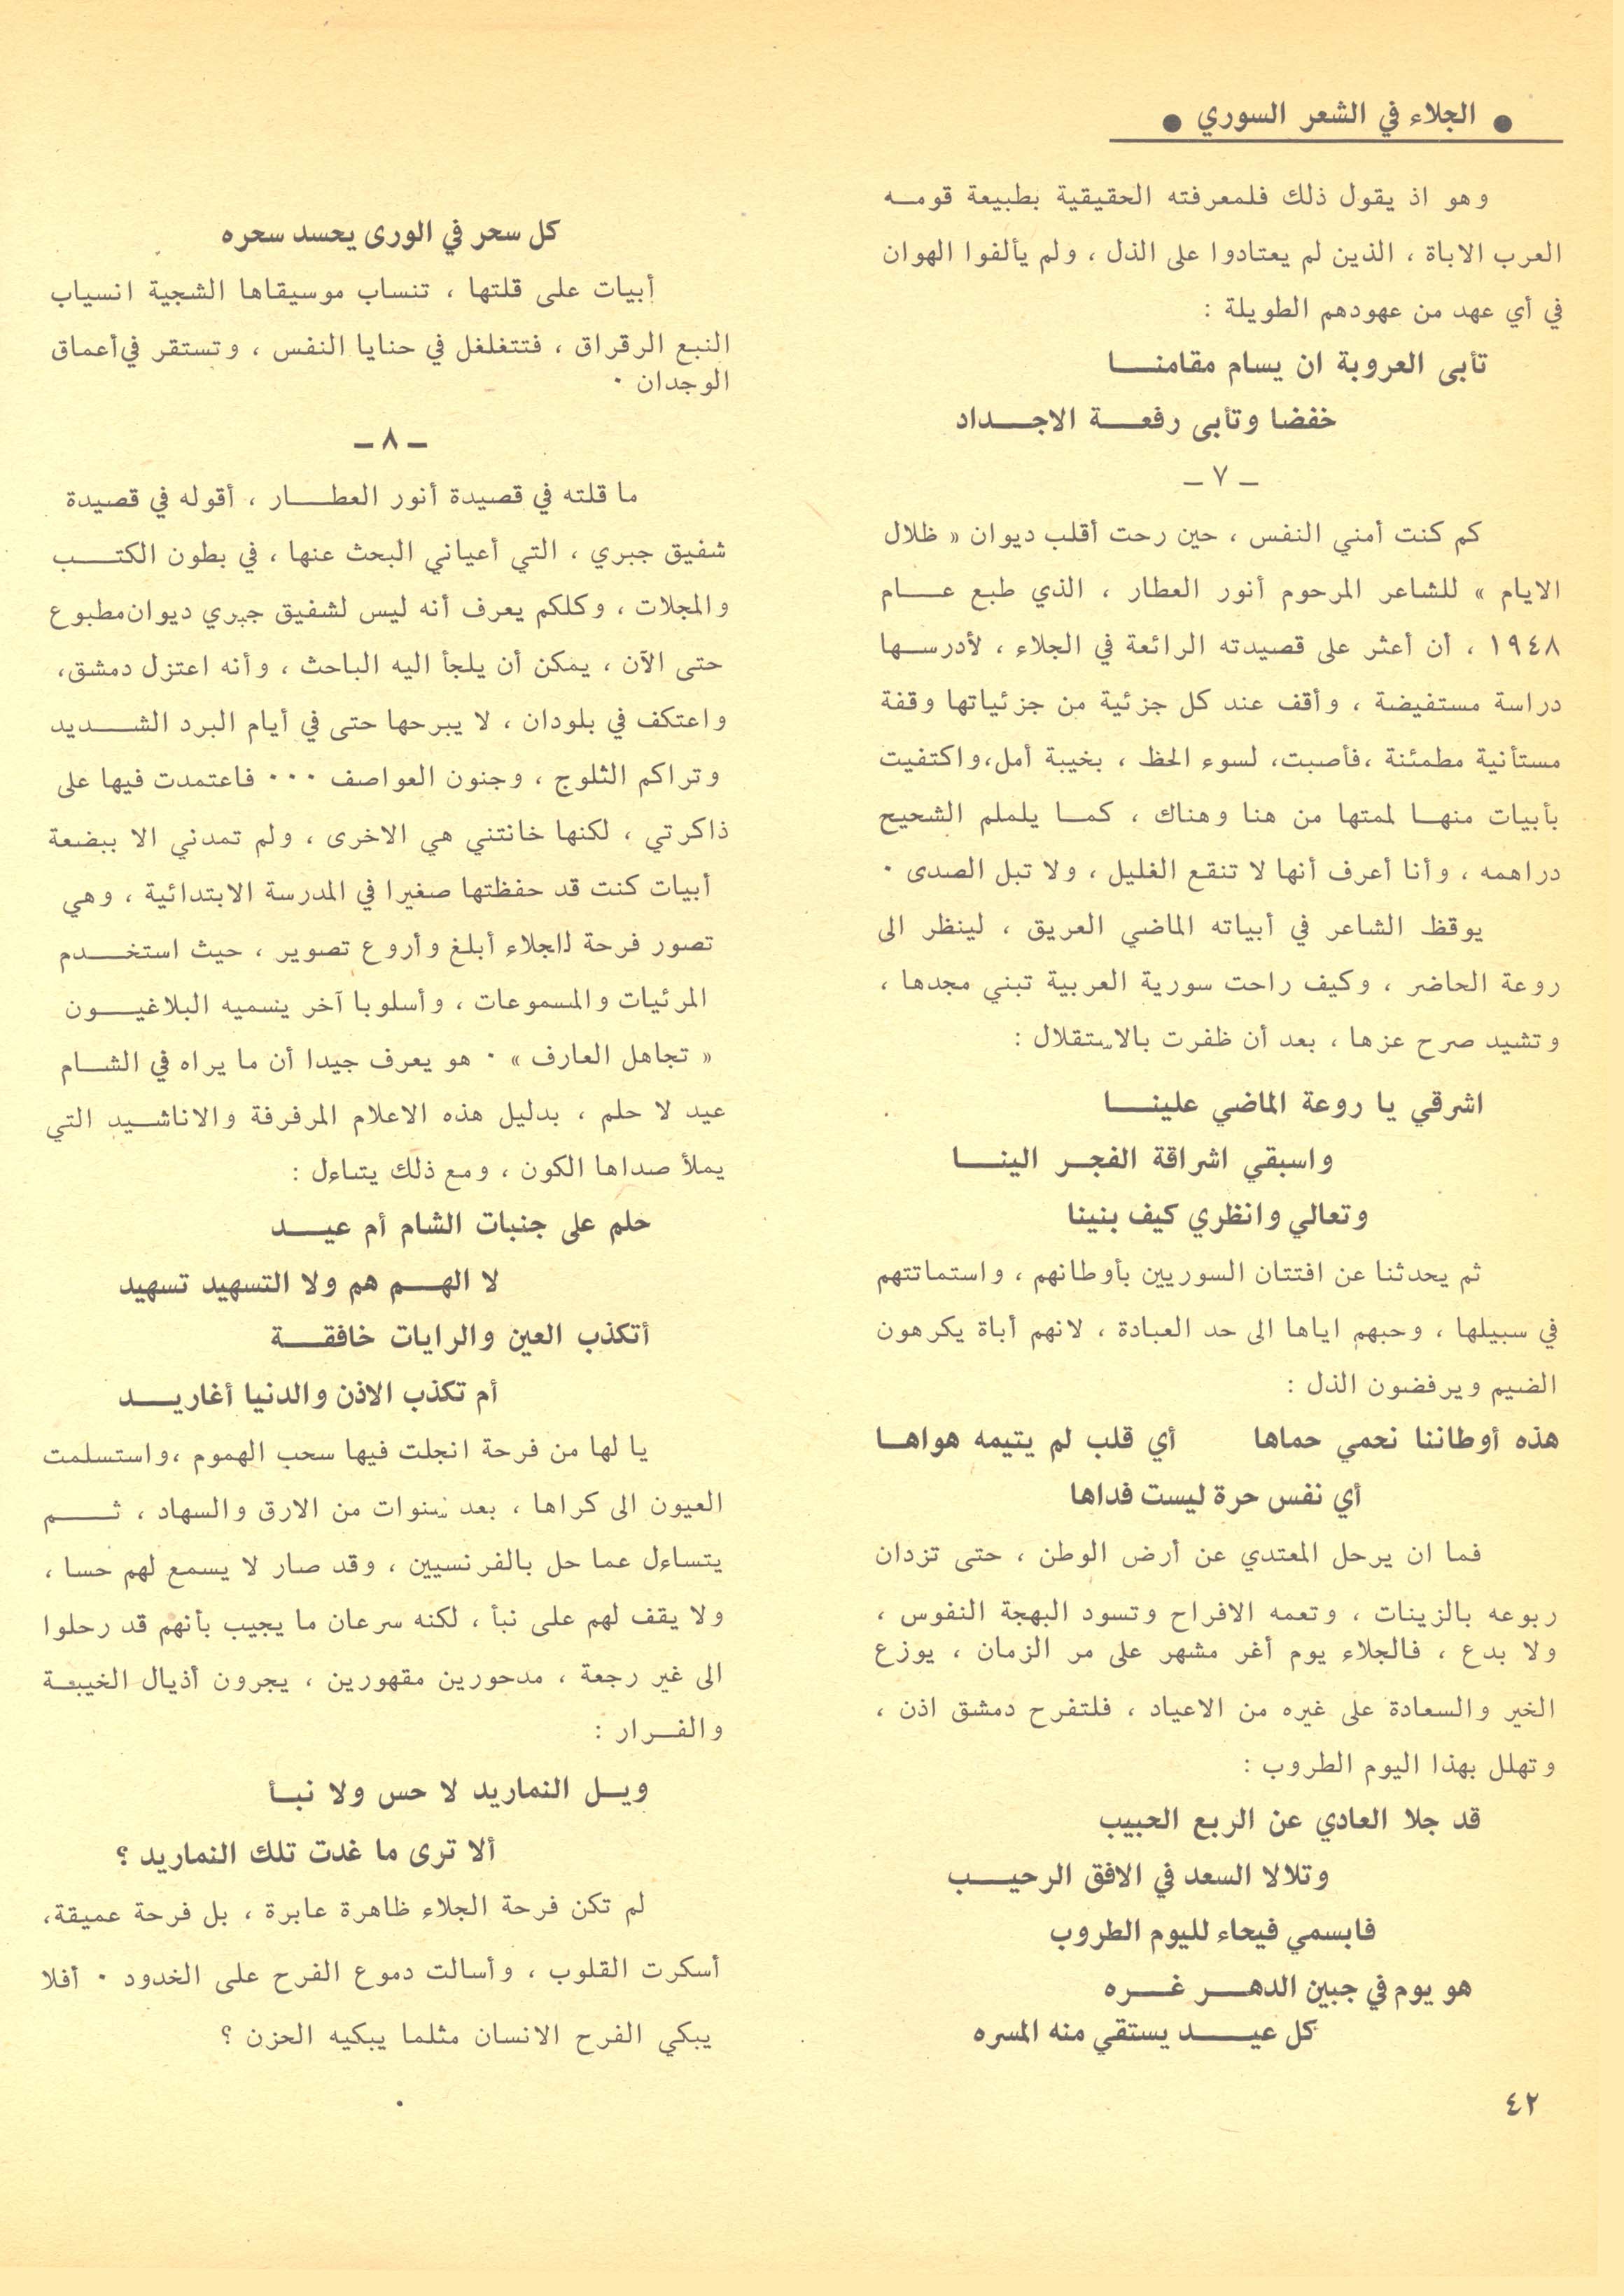 ● الجلاء في الشعر السوري ●
وهو اذ يقول ذلك فلمعرفته الحقيقية بطبيعة قومه
العرب الاباة ، الذين لم يعتادوا على الذل ، ولم يألفوا الهوان
في أي عهد من عهودهم الطويلة :
تأبى العروبة ان يسام مقامنا
خفضا وتأبى رفعة الاجداد
– ٧ –
كم كنت أمني النفس ، حين رحت أقلب ديوان « ظلال
الايام » للشاعر المرحوم أنور العطار ، الذي طبع عام
١٩٤٨ ، أن أعثر على قصيدته الرائعة في الجلاء ، لأدرسها
دراسة مستفيضة ، وأقف عند كل جزئية من جزئياتها وقفة
مستأنية مطمئنة ، فأصبت، لسوء الحظ ، بخيبة أمل، واكتفيت
بأبيات منها لممتها من هنا وهناك ، كما يلملم الشحيح
دراهمه ، وأنا أعرف أنها لا تنقع الغليل ، ولا تبل الصدى ٠
يوقظ الشاعر في أبياته الماضي العريق ، لينظر الى
روعة الحاضر ، وكيف راحت سورية العربية تبني مجدها ،
وتشيد صرح عزها ، بعد أن ظفرت بالاستقلال :
اشرقي يا روعة الماضي علينا
واسبقي اشراقة الفجر الينا
وتعالي وانظري كيف بنينا
ثم يحدثنا عن افتتان السوريين بأوطانهم ، واستماتتهم
في سبيلها ، وحبهم اياها الى حد العبادة ، لانهم أباة يكرهون
الضيم ويرفضون الذل :
هذه أوطاننا نحمي حماها أي قلب لم يتيمه هواها
أي نفس حرة ليست فداها
فما ان يرحل المعتدي عن أرض الوطن ، حتى تزدان
ربوعه بالزينات ، وتعمه الافراح وتسود البهجة النفوس ،
ولا بدع ، فالجلاء يوم أغر مشهر على مر الزمان ، يوزع
الخير والسعادة على غيره من الاعياد ، فلتفرح دمشق اذن ،
وتهلل بهذا اليوم الطروب :
قد جلا العادي عن الربع الحبيب
وتلالا السعد في الافق الرحيب
فابسمي فيحاء لليوم الطروب
هو يوم في جبين الدهر غره
كل عيد يستقي منه المسره
كل سحر في الورى يحسد سحره
أبيات على قلتها ، تنساب موسيقاها الشجية انسياب
النبع الرقراق ، فتتغلغل في حنايا النفس ، وتستقر في أعماق
الوجدان ٠
– ٨ –
ما قلته في قصيدة أنور العطار ، أقوله في قصيدة
شفيق جبري ، التي أعياني البحث عنها ، في بطون الكتب
والمجلات ، وكلكم يعرف أنه ليس لشفيق جبري ديوان مطبوع
حتى الآن ، يمكن أن يلجأ اليه الباحث ، وأنه اعتزل دمشق،
واعتكف في بلودان ، لا يبرحها حتى في أيام البرد الشديد
وتراكم الثلوج ، وجنون العواصف ٠٠٠ فاعتمدت فيها على
ذاكرتي ، لكنها خانتني هي الاخرى ، ولم تمدني الا ببضعة
أبيات كنت قد حفظتها صغيرا في المدرسة الابتدائية ، وهي
تصور فرحة الجلاء أبلغ وأروع تصوير ، حيث استخدم
المرئيات والمسموعات ، وأسلوبا آخر يسميه البلاغيون
« تجاهل العارف » ٠ هو يعرف جيدا أن ما يراه في الشام
عيد لا حلم ، بدليل هذه الاعلام المرفرفة والاناشيد التي
يملأ صداها الكون ، ومع ذلك يتساءل :
حلم على جنبات الشام أم عيد
لا الهم هم ولا التسهيد تسهيد
أتكذب العين والرايات خافقة
أم تكذب الاذن والدنيا أغاريد
يا لها من فرحة انجلت فيها سحب الهموم ، واستسلمت
العيون الى كراها ، بعد سنوات من الارق والسهاد ، ثم
يتساءل عما حل بالفرنسيين ، وقد صار لا يسمع لهم حسا ،
ولا يقف لهم على نبأ ، لكنه سرعان ما يجيب بأنهم قد رحلوا
الى غير رجعة ، مدحورين مقهورين ، يجرون أذيال الخيبة
والفرار :
ويل النماريد لا حس ولا نبأ
ألا ترى ما غدت تلك النماريد ؟
لم تكن فرحة الجلاء ظاهرة عابرة ، بل فرحة عميقة،
أسكرت القلوب ، وأسالت دموع الفرح على الخدود ٠ أفلا
يبكي الفرح الانسان مثلما يبكيه الحزن ؟
٤٢